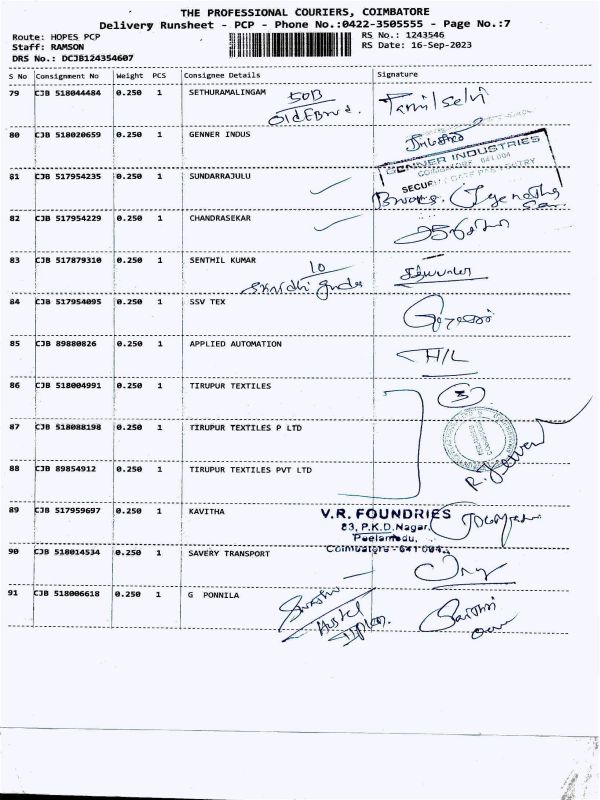 THE PROFESSIONAL COURIERS, COIMBATORE
Delivery Runsheet - PCP - Phone No.:0422-3505555 - Page No.:7
Route: HOPES PCP
Staff: RAMSON
DRS No.: DCJB124354607
RS No.: 1243546
RS Date: 16-Sep-2023
S No Consignment No Weight PCS Consignee Details Signature
79 CJB 518044484 0.250 1 SETHURAMALINGAM 50B Tamil Selvi
80 CJB 518020659 0.250 1 GENNER INDUS
GENNER INDUSTRIES
COIMBATORE 641 004
81 CJB 517954235 0.250 1 SUNDARRAJULU
82 CJB 517954229 0.250 1 CHANDRASEKAR
83 CJB 517879310 0.250 1 SENTHIL KUMAR 10
84 CJB 517954095 0.250 1 SSV TEX
85 CJB 89880826 0.250 1 APPLIED AUTOMATION H/L
86 CJB 518004991 0.250 1 TIRUPUR TEXTILES 3
87 CJB 518088198 0.250 1 TIRUPUR TEXTILES P LTD
88 CJB 89854912 0.250 1 TIRUPUR TEXTILES PVT LTD
89 CJB 517959697 0.250 1 KAVITHA
V.R. FOUNDRIES
83, P.K.D. Nagar,
Peelamedu,
Coimbatore - 641 004.
90 CJB 518014534 0.250 1 SAVERY TRANSPORT
91 CJB 518006618 0.250 1 G PONNILA
Hostel